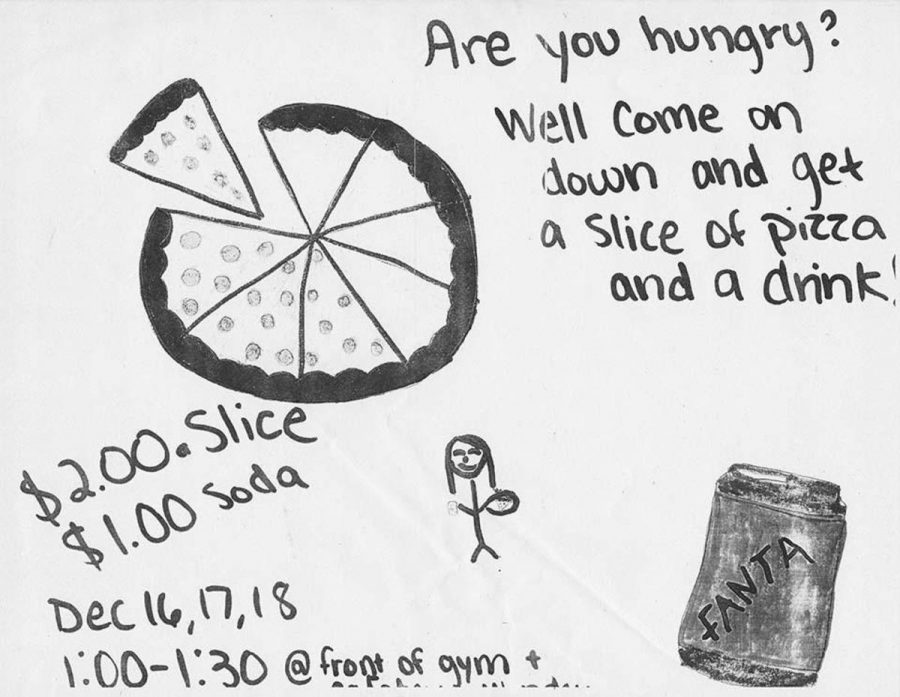 Are you hungry?
Well Come on
down and get
a Slice of pizza
and a drink!
$2.00 a Slice
$1.00 Soda
FANTA
Dec 16, 17, 18
1:00-1:30 @ front of gym +